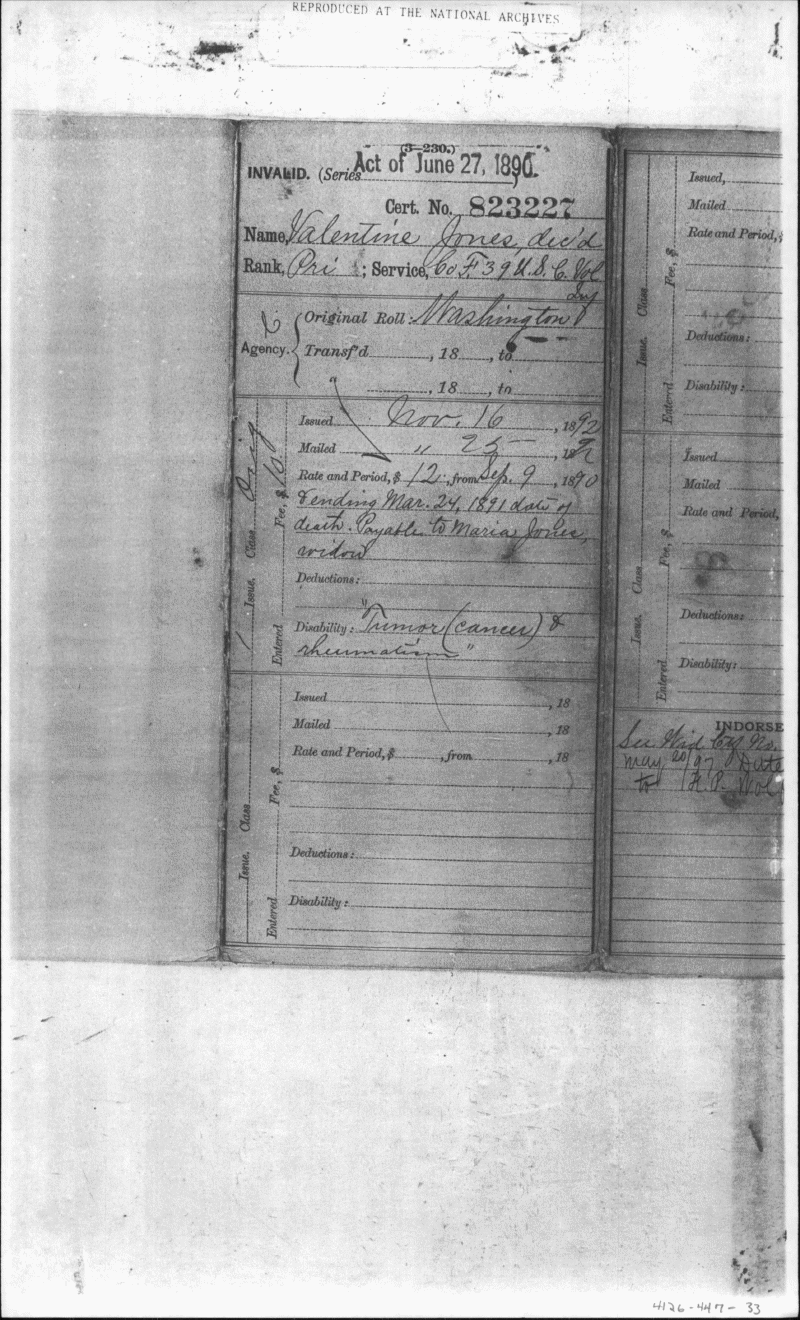 REPRODUCED AT THE NATIONAL ARCHIVES
(3—230.)
INVALID. (Series Act of June 27, 1890.)
Cert. No. 823227
Name, Valentine Jones, dec'd
Rank, Pri ; Service, Co F. 39 U.S.C. Vol
Inf
Original Roll: Washington
Agency. Transf'd , 18 , to
, 18 , to
Issued Nov. 16 , 1892
Mailed " 25 , 1892
Rate and Period, $ 12. , from Sep. 9 , 1890
& ending Mar. 24, 1891 date of
death. Payable to Maria Jones,
widow
Deductions:
Disability: "Tumor (cancer) &
rheumatism"
Issue, Class Orig
Entered Fee, $ 10.
Issued , 18
Mailed , 18
Rate and Period, $ , from , 18
Deductions:
Disability:
Issue, Class
Entered Fee, $
Issued,
Mailed
Rate and Period, $
Deductions:
Disability:
Issue, Class
Entered Fee, $
Issued
Mailed
Rate and Period,
Deductions:
Disability:
Issue, Class
Entered Fee, $
INDORSE
See Wid No.
May 20/97 Date
to Vol
4126-447-33